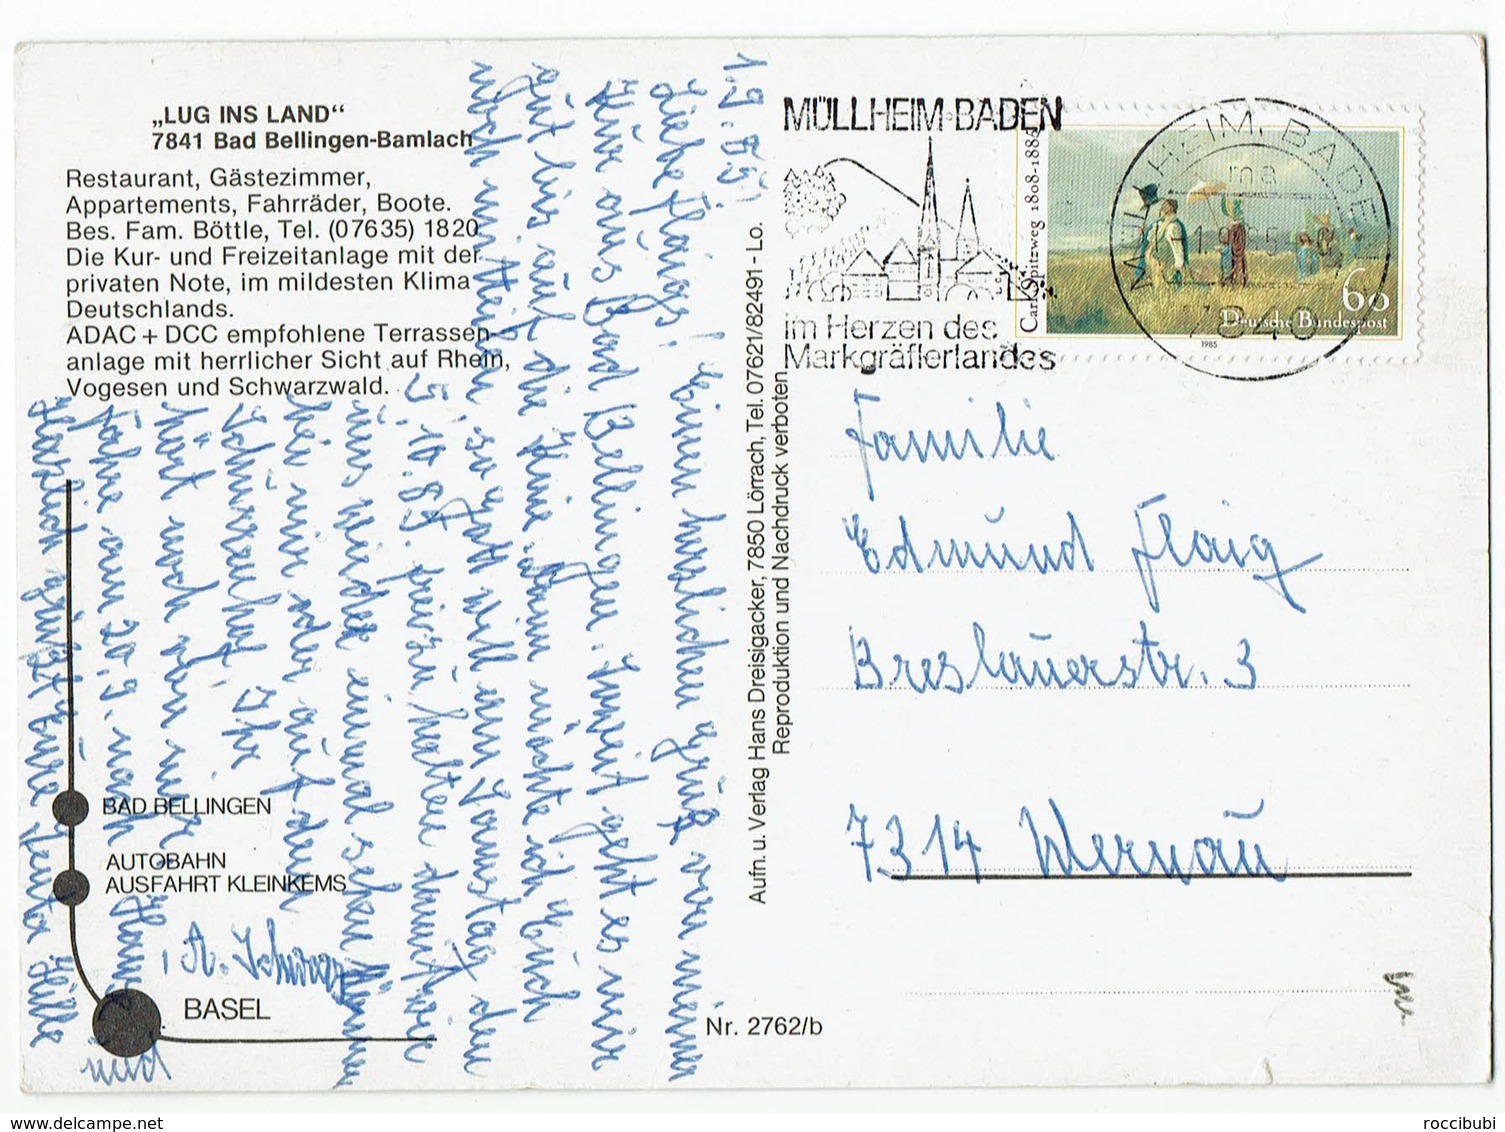 „LUG INS LAND“
7841 Bad Bellingen-Bamlach
Restaurant, Gästezimmer,
Appartements, Fahrräder, Boote.
Bes. Fam. Böttle, Tel. (07635) 1820
Die Kur- und Freizeitanlage mit der
privaten Note, im mildesten Klima
Deutschlands.
ADAC + DCC empfohlene Terrassen-
anlage mit herrlicher Sicht auf Rhein,
Vogesen und Schwarzwald.
BAD BELLINGEN
AUTOBAHN
AUSFAHRT KLEINKEMS
BASEL
1.9.85.
Liebe Flaigs! Einen herzlichen Gruß von meiner
Kur aus Bad Bellingen. Soweit geht es mir
gut bis auf die Knie. Dann möchte ich Euch
noch mitteilen, so Gott will am Samstag den
5.10.85. frei zu halten damit wir
uns wieder einmal sehen können
bei mir oder auf dem
Schurrenhof. Ihr
hört noch von mir
fahre am 20.9. nach Hause
Herzlich grüßt Eure Tante Hilde
und
A. Schwarz
Aufn. u. Verlag Hans Dreisigacker, 7850 Lörrach, Tel. 07621/82491 - Lo.
Reproduktion und Nachdruck verboten
Nr. 2762/b
MÜLLHEIM·BADEN
im Herzen des
Markgräflerlandes
MÜLLHEIM, BADEN
ma
7840
Carl Spitzweg 1808-1885
60
Deutsche Bundespost
1985
Familie
Edmund Flaig
Breslauerstr. 3
7314 Wernau
roccibubi